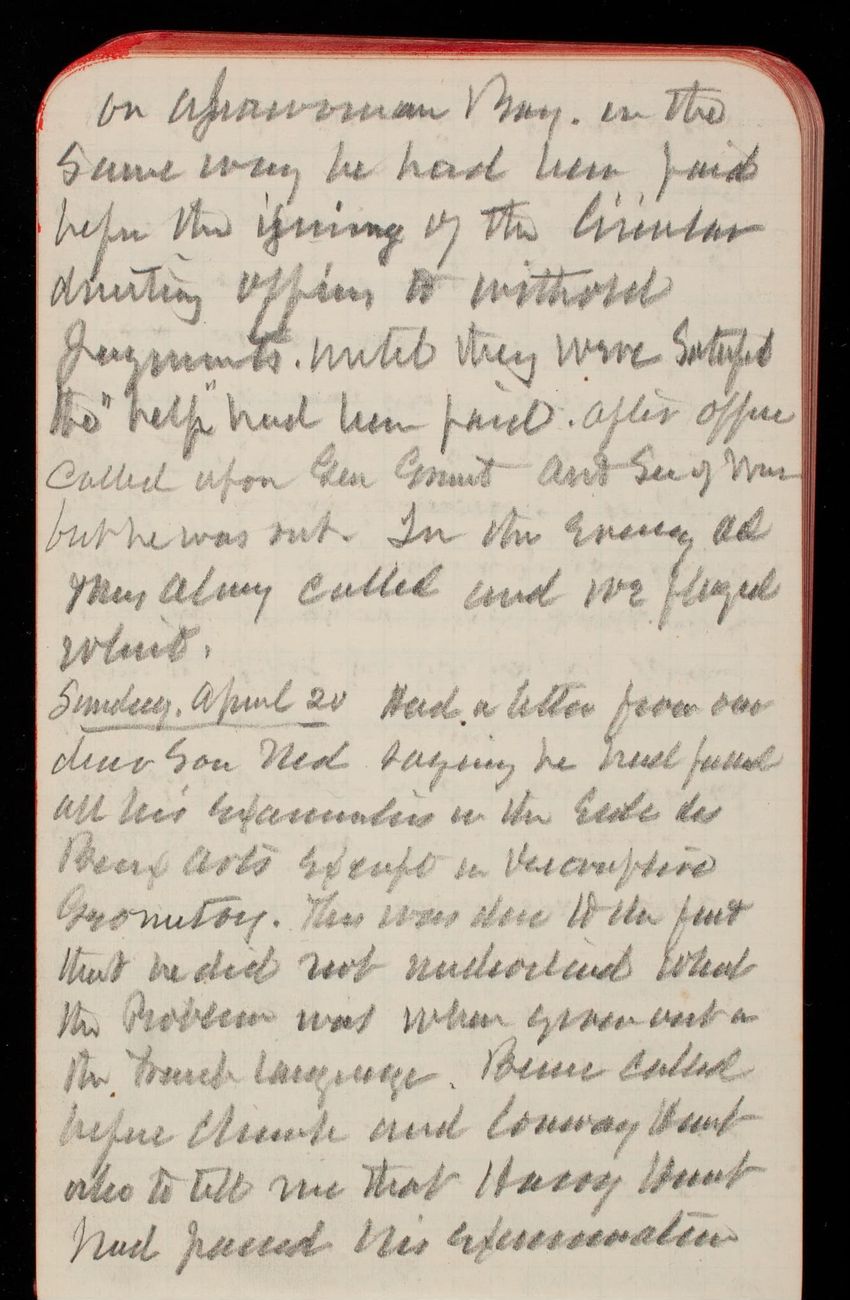 on                Bay. in the
same way he had been paid
before the issuing of the Circular
directing officers to withold
payments. until they were satisfied
the "help" had been paid. After office
called upon Gen Grant Asst Sec of War
but he was out. In the Evening Ad
Mrs Almy called and we played
whist.
Sunday. April 20 Had a letter from our
dear Son Ned saying he had passed
all his Examinations in the Ecole des
Beaux Arts Except in Descriptive
Geometry. This was due to the fact
that he did not understand what
the Problem was when given out in
the French language. Bernie called
before church and Conway Hunt
also to tell me that Harry Hunt
had passed his examination